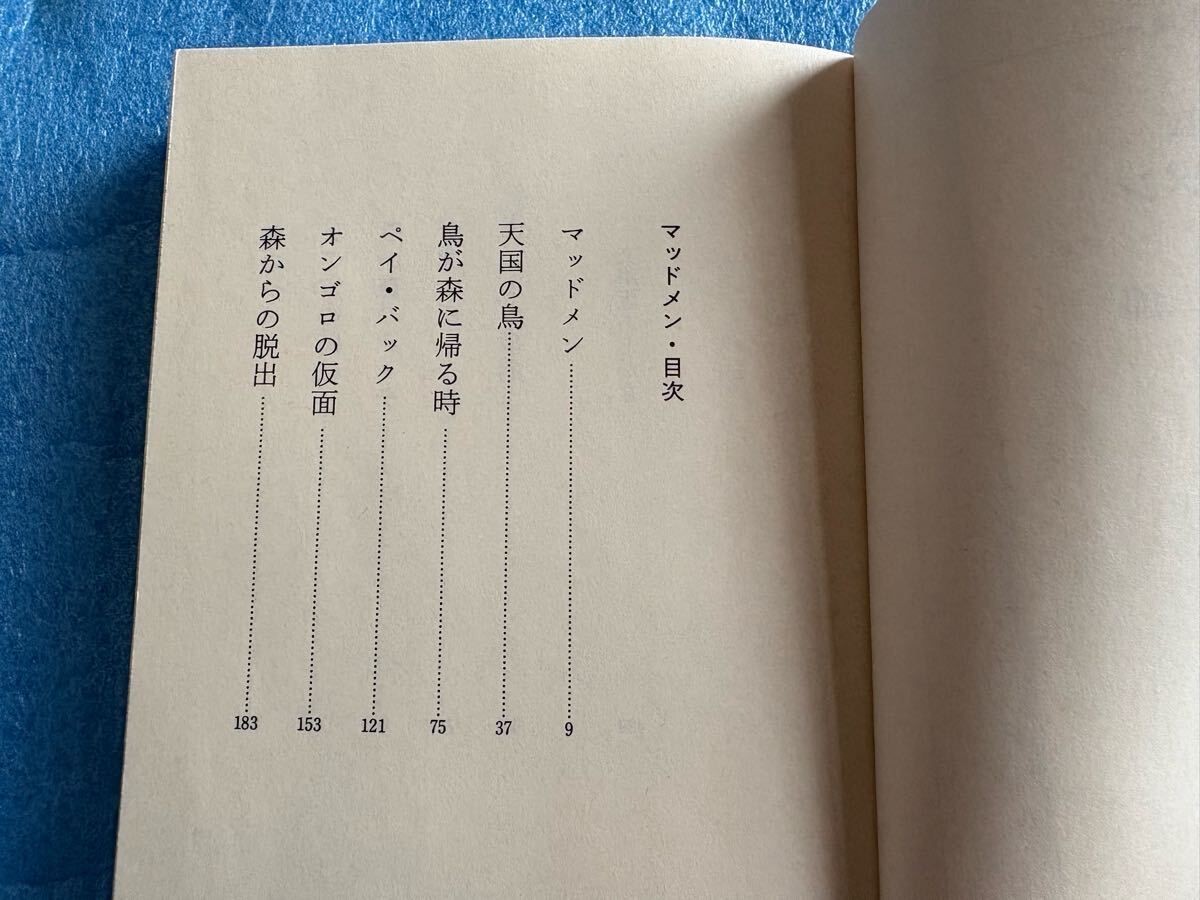 マッドメン・目次
マッドメン……………………9
天国の鳥……………………37
鳥が森に帰る時……………………75
ペイ・バック……………………121
オンゴロの仮面……………………153
森からの脱出……………………183